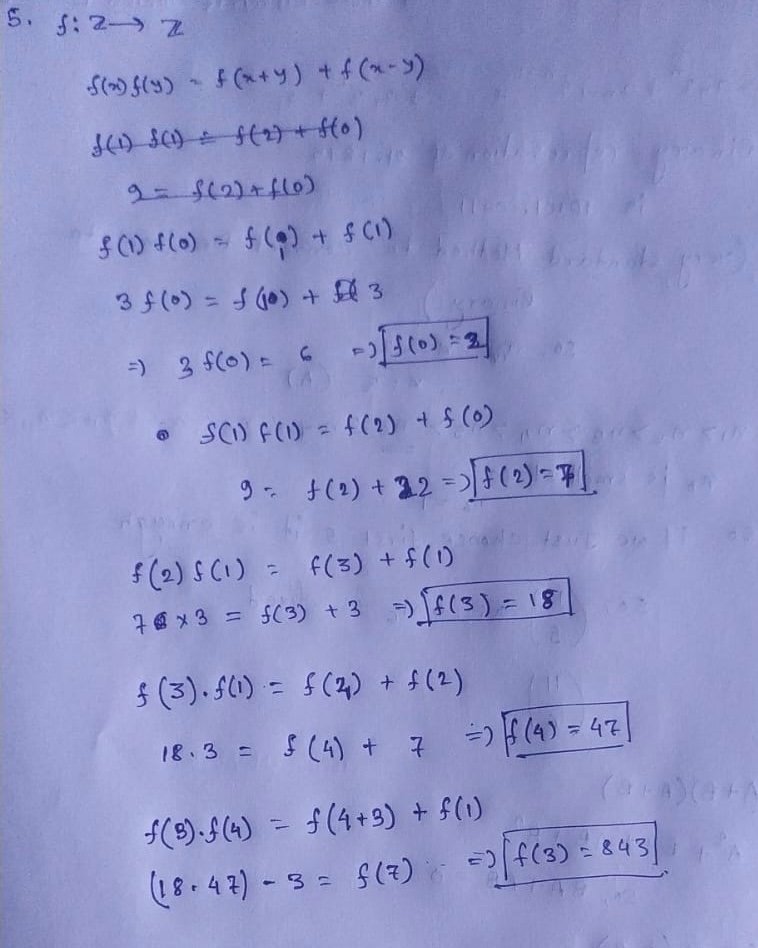 5. f: Z → Z
f(x) f(y) = f(x+y) + f(x-y)
f(1) f(1) = f(2) + f(0)
9 = f(2) + f(0)
f(1) f(0) = f(1) + f(1)
3 f(0) = f(1) + 3
=) 3 f(0) = 6 =) f(0) = 2
f(1) f(1) = f(2) + f(0)
9 = f(2) + 2 =) f(2) = 7
f(2) f(1) = f(3) + f(1)
7 × 3 = f(3) + 3 =) f(3) = 18
f(3).f(1) = f(4) + f(2)
18.3 = f(4) + 7 =) f(4) = 47
f(3).f(4) = f(4+3) + f(1)
(18.47) - 3 = f(7) =) f(3) = 843